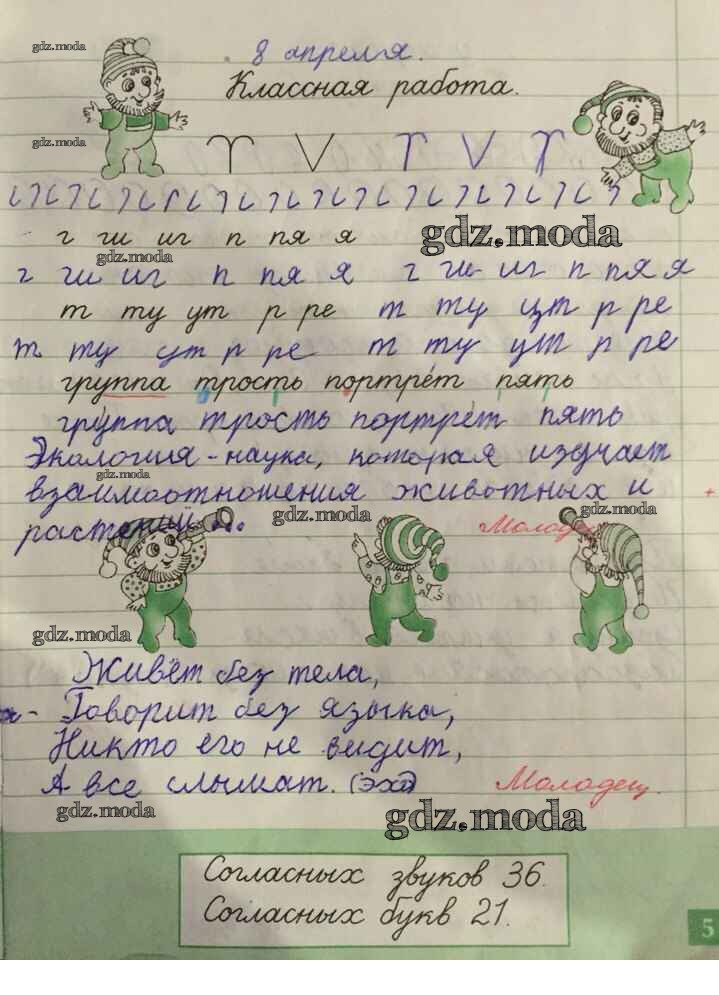 gdz.moda
8 апреля.
Классная работа.
gdz.moda
г ги иг п пя я
gdz.moda
gdz.moda
г ги иг п пя я г ги иг п пя я
т ту ут р ре т ту ут р ре
т ту ут р ре т ту ут р ре
группа трость портрет пять
группа трость портрет пять
Экология - наука, которая изучает
gdz.moda
взаимоотношения животных и
gdz.moda
gdz.moda
растений...
Молодец
gdz.moda
Живёт без тела,
Говорит без языка,
Никто его не видит,
А все слышат. (эхо)
Молодец.
gdz.moda
gdz.moda
Согласных звуков 36.
Согласных букв 21.
5